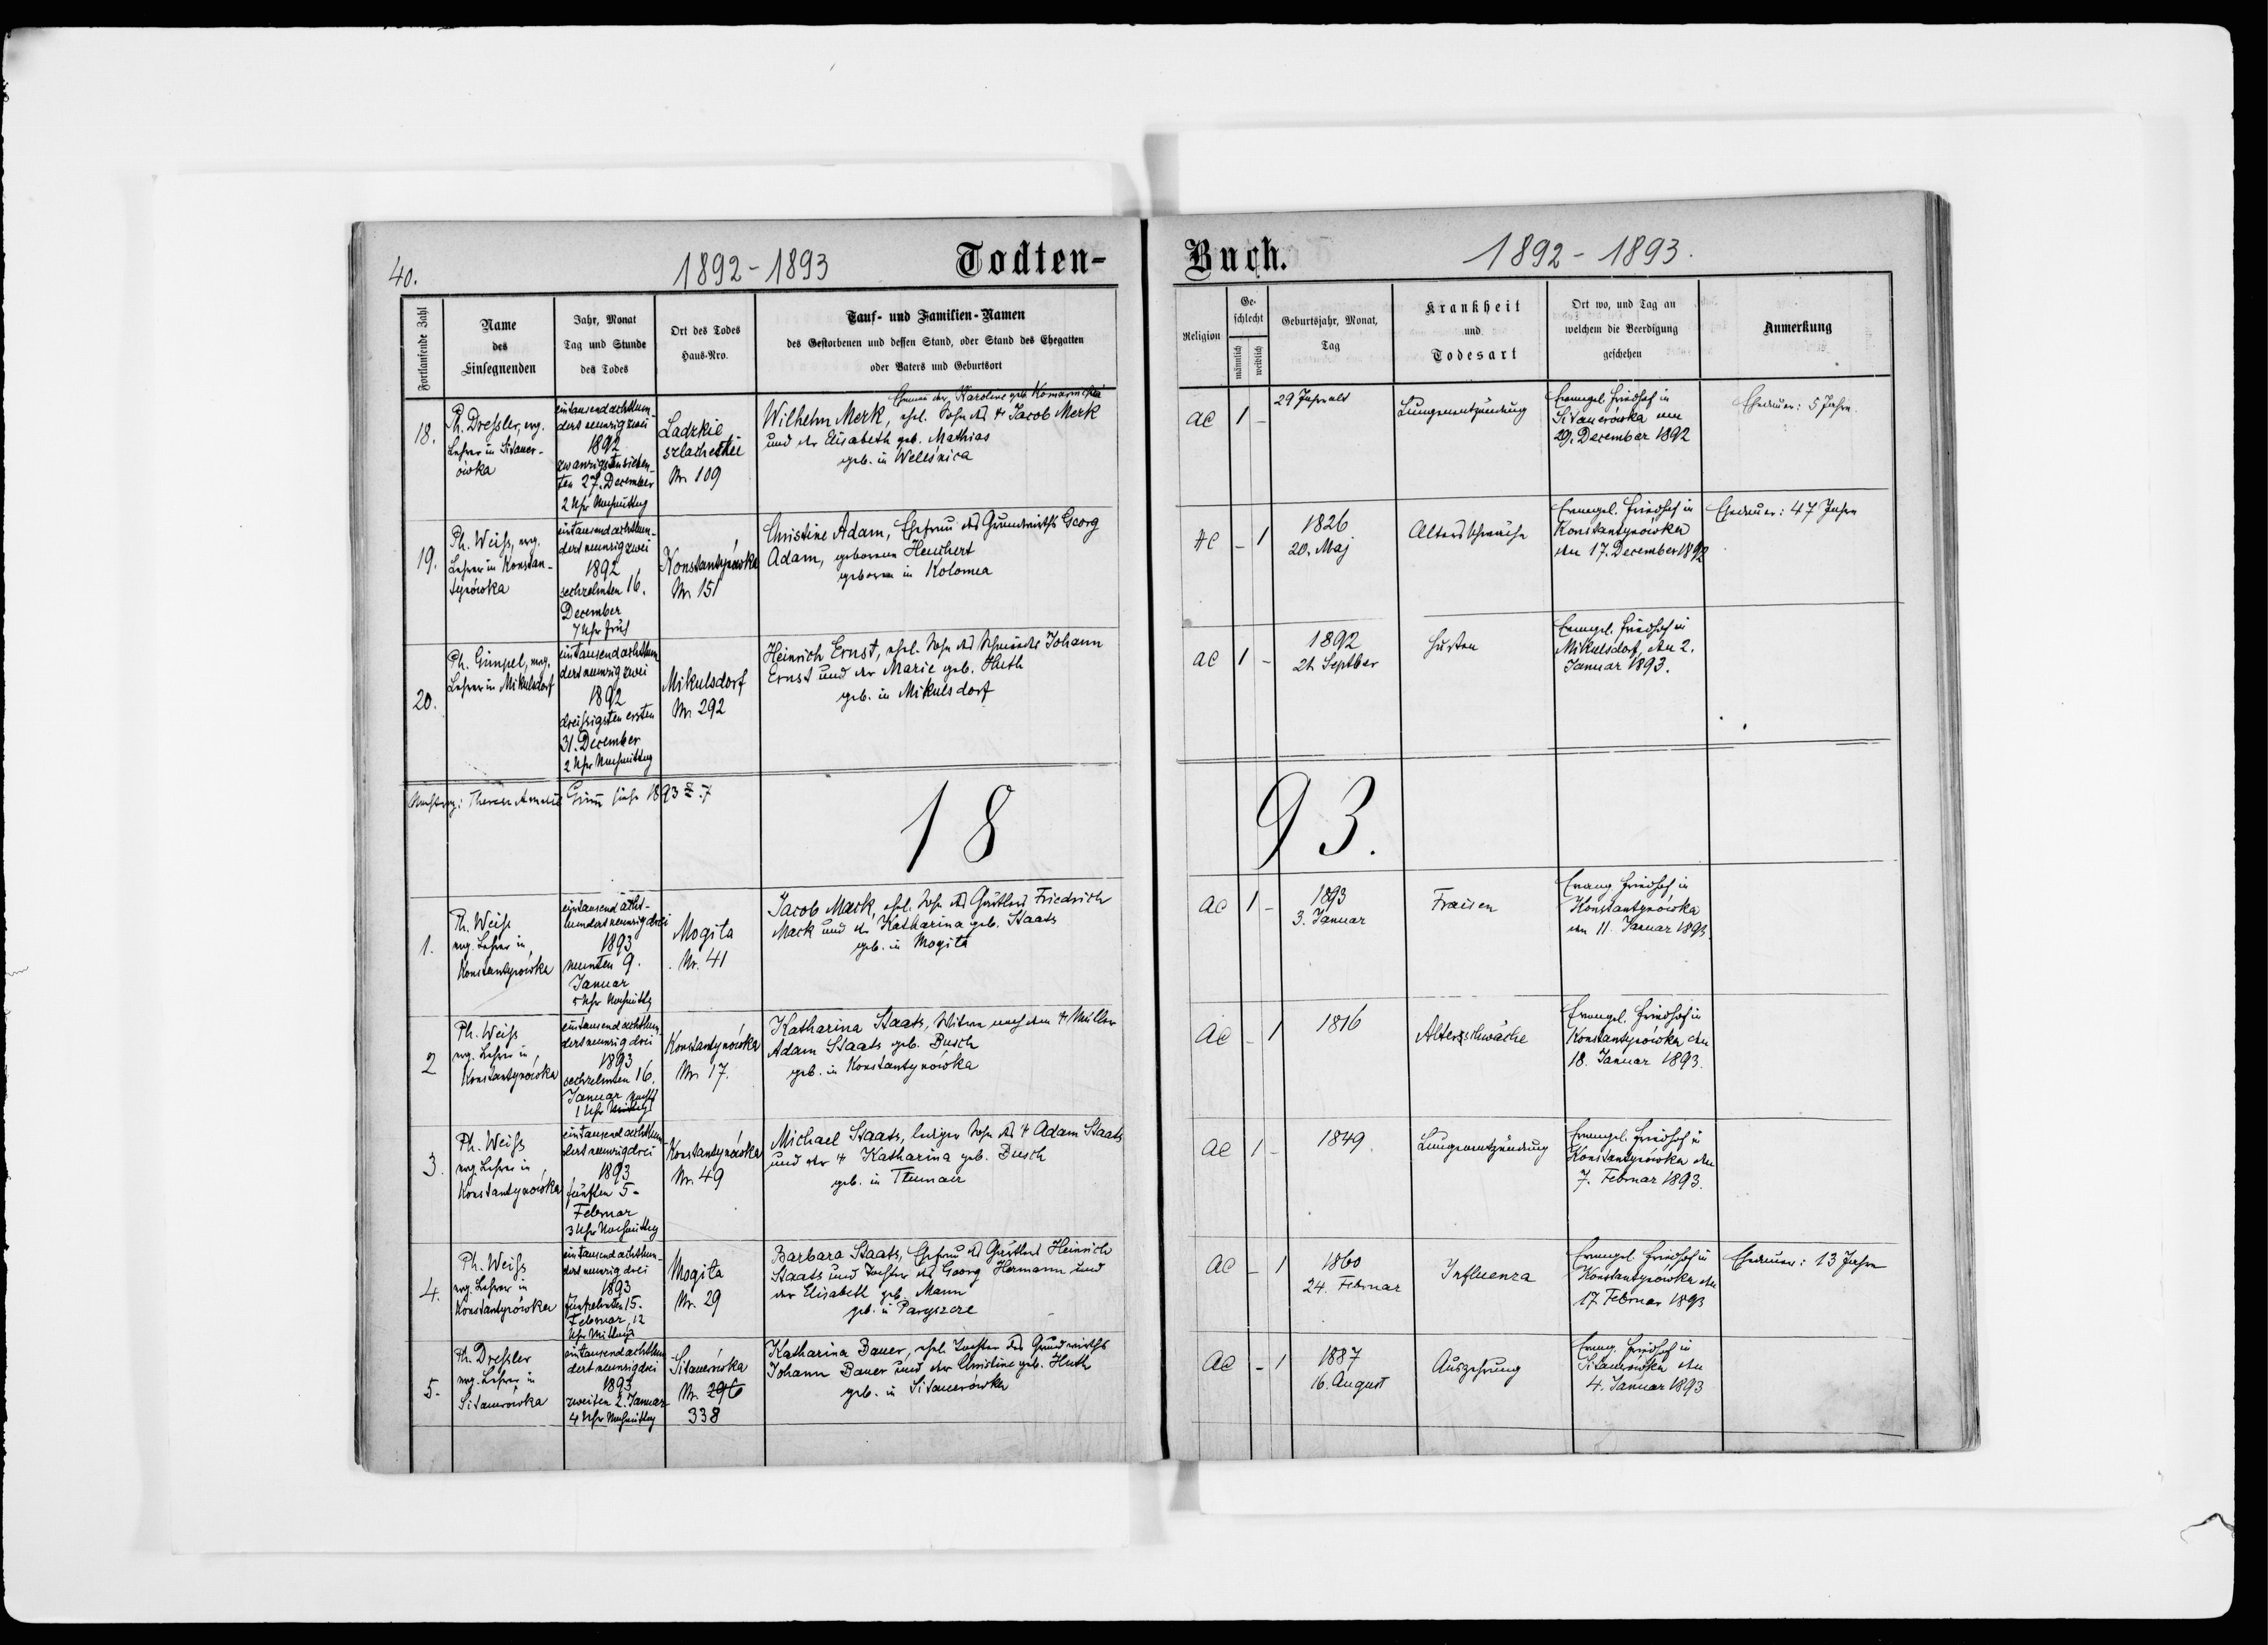 40.
1892-1893
Todten-
Buch.
1892-1893.
Fortlaufende Zahl
Name
des
Einsegnenden
Jahr, Monat
Tag und Stunde
des Todes
Ort des Todes
Haus-Nro.
Tauf- und Familien-Namen
des Gestorbenen und dessen Stand, oder Stand des Ehegatten
oder Vaters und Geburtsort
Religion
Ge-
schlecht
männlich
weiblich
Geburtsjahr, Monat,
Tag
Krankheit
und
Todesart
Ort wo, und Tag an
welchem die Beerdigung
geschehen
Anmerkung
18.
Ph. Dreßler, evg.
Lehrer in Sitauer-
ówka
eintausendachthun-
dertneunzigzwei
1892
zwanzigstensieben-
ten 27. December
2 Uhr Nachmittag
Ladzkie
szlacheckie
Nr. 109
Ehemann der Karoline geb. Komarnicka
Wilhelm Merk, ehel. Sohn des † Jacob Merk
und der Elisabeth geb. Mathias
geb. in Welesnica
AC
1
-
29 Jahre alt
Lungenentzündung
Evangel. Friedhof in
Sitauerówka am
29. December 1892
Ehedauer: 5 Jahre.
19.
Ph. Weiß, evg.
Lehrer in Konstan-
tynówka
eintausendachthun-
dertneunzigzwei
1892
sechzehnten 16.
December
7 Uhr früh
Konstantynówka
Nr. 151
Christine Adam, Ehefrau des Grundwirths Georg
Adam, geborene Heuchert
geboren in Kolomea
AC
-
1
1826
20. Maj
Altersschwäche
Evangel. Friedhof in
Konstantynówka
den 17. December 1892
Ehedauer: 47 Jahre
20.
Ph. Gimpel, evg.
Lehrer in Mikulsdorf
eintausendachthun
dertneunzigzwei
1892
dreißigsten ersten
31. December
2 Uhr Nachmittag
Mikulsdorf
Nr. 292
Heinrich Ernst, ehel. Sohn des Schmiedes Johann
Ernst und der Marie geb. Huth
geb. in Mikulsdorf
AC
1
-
1892
21. Septber
Husten
Evangel. Friedhof in
Mikulsdorf, den 2.
Januar 1893.
Nachtrag: Therese Amalie Grim siehe 1893 Z. 7
18
93.
1.
Ph. Weiß
evg. Lehrer in
Konstantynówka
eintausend acht-
hundertneunzigdrei
1893
neunten 9.
Januar
5 Uhr Nachmittg
Mogila
Nr. 41
Jacob Mack, ehel. Sohn des Gärtlers Friedrich
Mack und der Katharina geb. Staats
geb. in Mogila
AC
1
-
1893
3. Januar
Fraisen
Evang. Friedhof in
Konstantynówka
den 11. Januar 1893.
2
Ph. Weiß
evg. Lehrer in
Konstantynówka
eintausendachthun
dertneunzigdrei
1893
sechzehnten 16.
Januar nachts
1 Uhr Mittag
Konstantynówka
Nr. 17.
Katharina Staats, Witwe nach dem † Müller
Adam Staats geb. Busch
geb. in Konstantynówka
AC
-
1
1816
Altersschwäche
Evangel. Friedhof in
Konstantynówka den
18. Januar 1893.
3.
Ph. Weiß
evg Lehrer in
Konstantynowka
eintausendachthun
dertneunzigdrei
1893
fünften 5-
Februar
3 Uhr Nachmittag
Konstantynówka
Nr. 49
Michael Staats, lediger Sohn des † Adam Staats
und der † Katharina geb. Busch
geb. in Tlumacz
AC
1
-
1849
Lungenentzündung
Evangel. Friedhof in
Konstantynówka den
7. Februar 1893.
4.
Ph. Weiß
evg. Lehrer in
Konstantynówka
eintausendachthun-
dertneunzig drei
1893
fünfzehnten 15.
Februar, 12
Uhr Mittags
Mogila
Nr. 29
Barbara Staats, Ehefrau des Gärtlers Heinrich
Staats und Tochter des Georg Hermann und
der Elisabeth geb. Mann
geb. in Paryszcze
AC
-
1
1860
24. Februar
Influenza
Evangel. Friedhof in
Konstantynówka den
17. Februar 1893
Ehedauer: 13 Jahre
5.
Ph. Dreßler
evg. Lehrer in
Sitauerówka
eintausendachthun
dertneunzigdrei
1893
zweiten 2. Januar
4 Uhr Nachmittag
Sitauerówka
Nr. 296
338
Katharina Bauer, ehel. Tochter des Grundwirths
Johann Bauer und der Christine geb. Huth
geb. in Sitauerówka
AC
-
1
1887
16. August
Auszehrung
Evang. Friedhof in
Sitauerówka den
4. Januar 1893